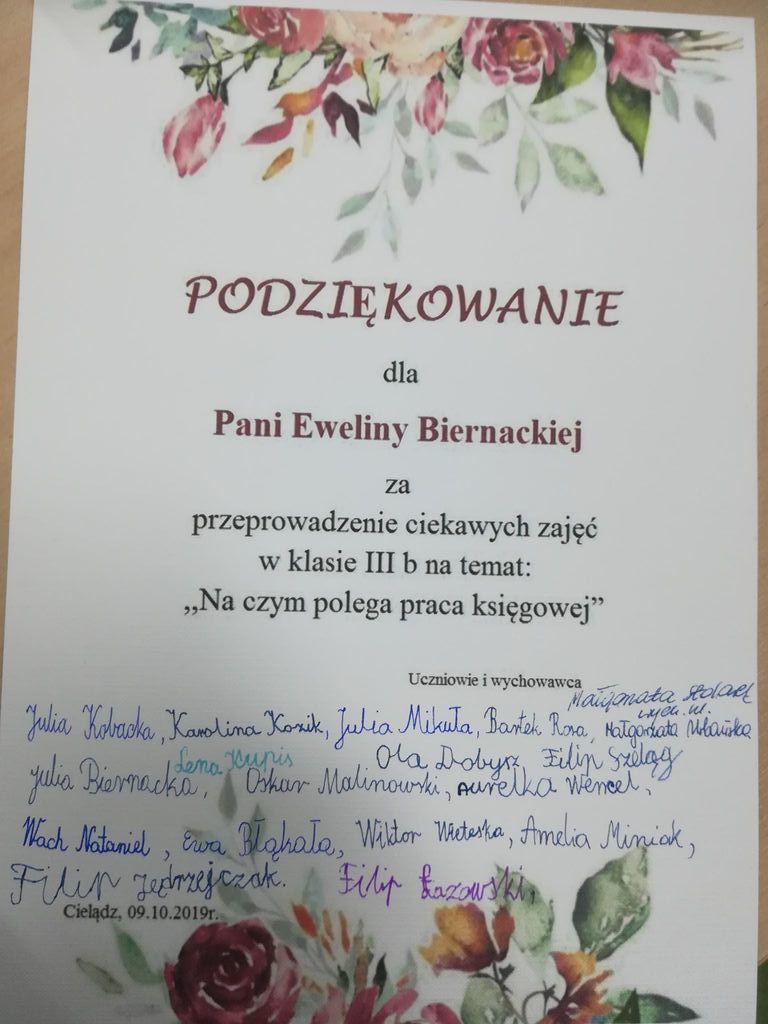 PODZIĘKOWANIE
dla
Pani Eweliny Biernackiej
za
przeprowadzenie ciekawych zajęć
w klasie III b na temat:
,,Na czym polega praca księgowej”
Uczniowie i wychowawca
Małgorzata
Julia Kobacka, Karolina Kozik, Julia Mikuła, Bartek Rosa, Małgorzata Urbańska
Lena Kupis Ola Dobysz Filip Szeląg
Julia Biernacka, Oskar Malinowski, Aurelka Wencel,
Wach Nataniel, Ewa Błąkała, Wiktor Wieteska, Amelia Miniak,
Filip Jędrzejczak. Filip Łazowski,
Cielądz, 09.10.2019r.